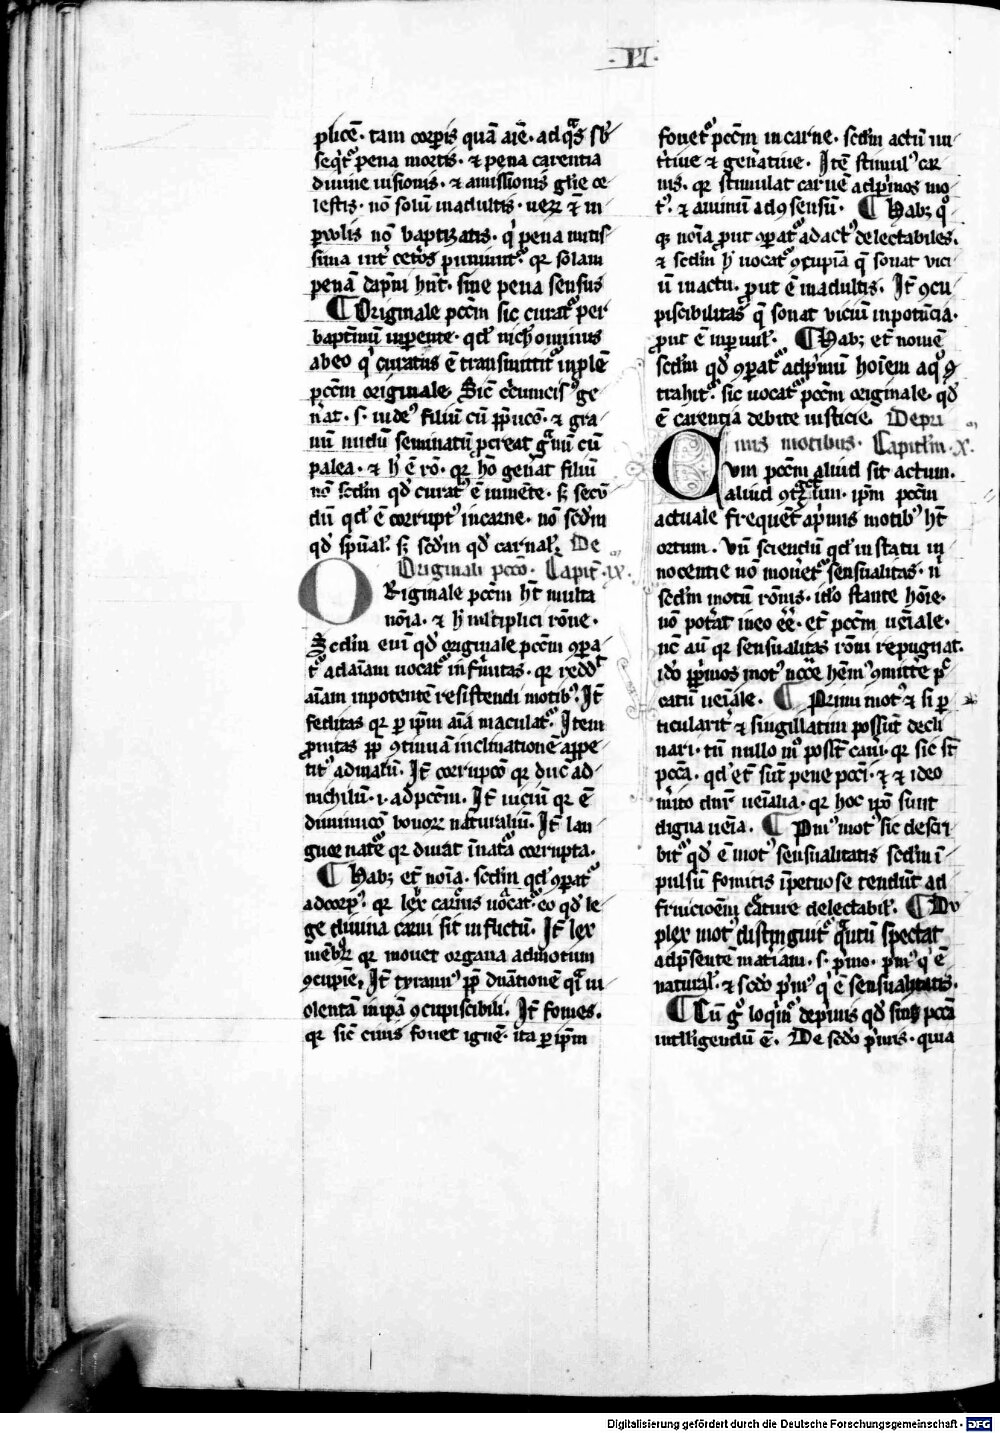 · III ·
plicē · tam corꝑis quā aīe · ad q̄s sb̓
seqͥt᷑ pena mortis · ⁊ pena carentia
diuine uisionis · ⁊ amissionis gl̄ie ce
lestis · nō solū in adultis · uerꝫ ⁊ in
ꝑuulis nō baptizatis · qͥ pena mitis
sima int̓ cet̓os puniunt᷑ · qꝛ solam
penā dāpni hn̄t · sine pena sensus
¶ Originale pccm̄ sic curat᷑ per
baptismū
ab eo qͥ curatus ē transmittit᷑ in plē
pccm̄ originale · Sic̄ ge
n̄at · s · iude᷒ filiū cū p̄pucio · ⁊ gra
nū nudū seminatū ꝓcreat gͣnū cū
palea · ⁊ h̓ ē rō · qꝛ hō gen̄at filiū
nō scd̄m qd̓ curat᷒ ē in mente · sꝫ secū
dū qd̓ ē corrupt᷒ in carne · nō scd̄m
qd̓ spūal̓ · sꝫ scd̄m qd̓ carnal̓ · De
Originali pccō · Capit̄ · ix ·
Originale pccm̄ hꝫ multa
nōīa · ⁊ h̓ multiplici rōne ·
Scd̄m enī qd̓ originale pccm̄ ꝯꝑa
t᷑ ad aīam uocat᷑ infirmitas · qꝛ redd̓
aīam inpotentē resistendi motib᷒ · It̄
feditas qꝛ ꝑ ip̄m aīa maculat᷑ · Item
ꝓnitas ꝓp̄ ꝯtinuā inclinationē appe
tit᷒ ad malū · It̄ corrupcō qꝛ duc̄ ad
nichilū · i · ad pccm̄ · It̄ uiciū qꝛ ē
diminucō bonorꝫ nāturaliū · It̄ lan
guor nature qꝛ corrupta ·
¶ Habꝫ et̄ nōīa · scd̄m qd̓ ꝯꝑat᷑
ad corp᷒ · qꝛ lex carnis uocat᷑ · eo qd̓ le
ge diuina carni sit inflictū · It̄ lex
mēbrꝫ qꝛ mouet organa ad motum
ꝯcupīe · It̄ tyrann᷒ ꝓp̄ dn̄ationē q̄ ui
olentā in pā ꝯcupiscibili · It̄ fomes ·
qꝛ sic̄ cinis fouet ignē · ita ꝑ ip̄m
fouet᷑ pccm̄ in carne · scd̄m actū nu
t̓tiue ⁊ gen̄atiue · Itē stimul᷒ car
nis · qꝛ stimulat carnē ad pͥmos mo
t᷒ · ⁊ animū ad ꝯsensū · ¶ Habꝫ qͦ
qꝫ nōīa ꝓut ꝯꝑat᷑ ad act᷒ delectabiles ·
⁊ scd̄m h̓ uocat᷑ ꝯcupīa q̄ sonat uici
ū in actu · ꝓut ē in adultis · It̄ ꝯcu
piscibilitas q̄ sonat uiciū in potēcia ·
ꝓut ē in ꝑuul̓ · ¶ Habꝫ et̄ nomē
scd̄m qd̓ ꝯꝑat᷑ ad pͥmū hoīem a quo ꝯ
trahit᷑ · sic uocat᷑ pccm̄ originale · qd̓
ē carentia debite iusticie · De pri
mis motibus · Capitl̄m · x ·
Cum pccm̄ aliud sit actum ·
aliud ꝯtractum · ip̄m pccm̄
actuale frequent̄ a pͥmis motib᷒ hꝫ
ortum · Vn̄ sciendū qd̓ in statu in
nocentie nō mouet᷑ sensualitas · nͥ
scd̄m motū rōnis · id̓o stante hōīe ·
nō potat in eo ēē · et̄ pccm̄ ueīale ·
nc̄ aū qꝛ sensualitas rōni repugnat ·
id̓o ꝓp̄ pͥmos mot᷒ nccē hēm᷒ ꝯmitte̓ pc̄
catū ueīale · ¶ Primi mot᷒ ⁊ si ꝑ
ticularit̓ ⁊ singillatim possūt decli
nari · tn̄ nullo mͦ possūt caueri · qꝛ sic sūt
pccā · qd̓ et̄ sūt pene pcci · ⁊ ideo
mͥto dn̄r ueīalia · qꝛ hoc ip̄o sunt
digna ueīa · ¶ Pͥm᷒ mot᷒ sic descri
bit᷑ qd̓ ē mot᷒ sensualitatis scd̄m ī
pulsū fomitis īpetuose tendēs ad
fruicōem c̄ature delectabil̓ · ¶ Du
plex mot᷒ distinguit᷑ qͣntū spectat
ad p̄sentē mat̓iam · s · pͥmo · pͥm᷒ qͥ ē
natural̓ · ⁊ scd̓o pͥm᷒ qͥ ē sensualitatis ·
¶ Cū gͦ loqͥm᷑ de pͥmis qd̓ sint pccā
intelligendū ē · De scd̓o pͥmis · quia
Digitalisierung gefördert durch die Deutsche Forschungsgemeinschaft · DFG